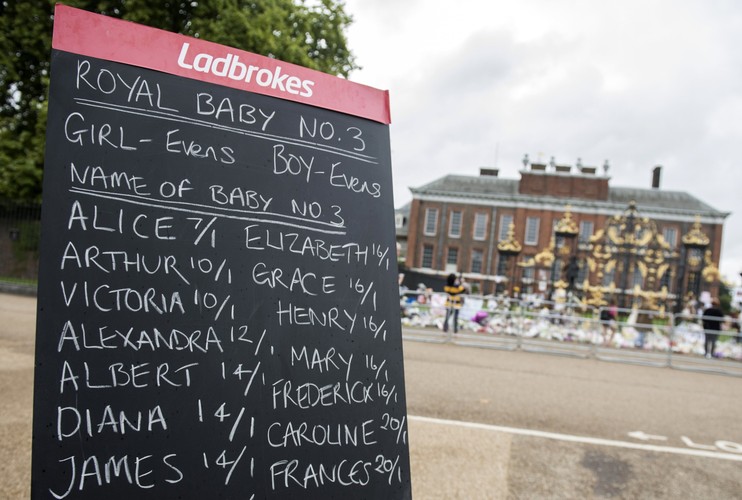 Ladbrokes
ROYAL BABY NO. 3
GIRL-Evens BOY-Evens
NAME OF BABY NO 3
ALICE 7/1
ARTHUR 10/1
VICTORIA 10/1
ALEXANDRA 12/1
ALBERT 14/1
DIANA 14/1
JAMES 14/1
ELIZABETH 16/1
GRACE 16/1
HENRY 16/1
MARY 16/1
FREDERICK 16/1
CAROLINE 20/1
FRANCES 20/1